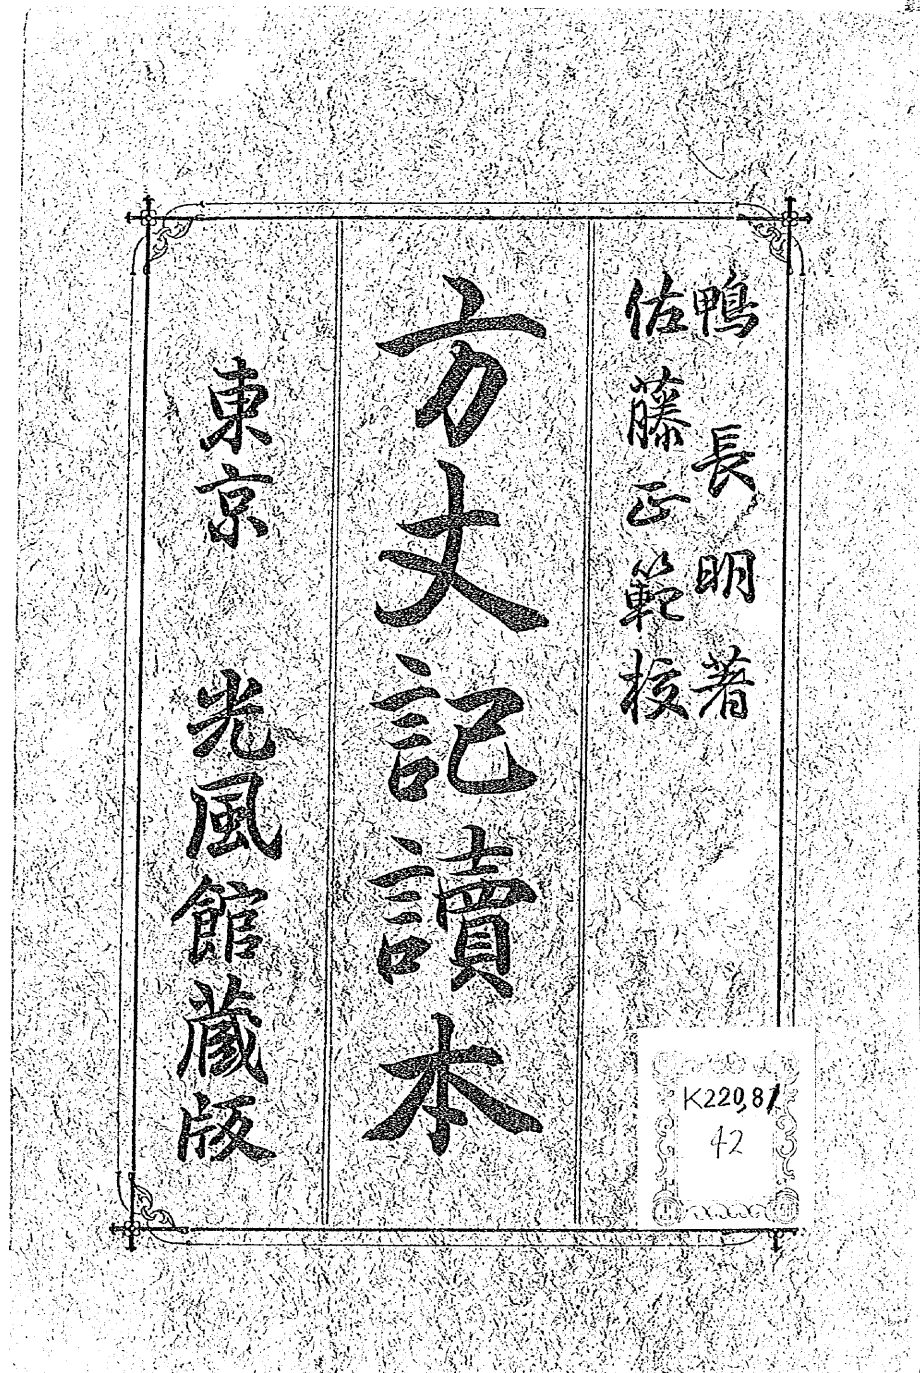 鴨長明著
佐藤正範校
方丈記讀本
東京 光風館藏版
K220.81
42